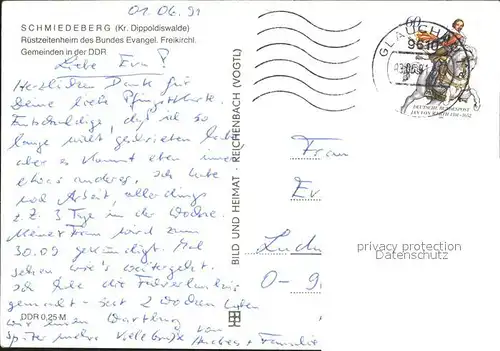 01.06.91
SCHMIEDEBERG (Kr. Dippoldiswalde)
Rüstzeitenheim des Bundes Evangel. Freikirchl.
Gemeinden in der DDR
Liebe Eva!
Herzlichen Dank für
Deine liebe Pfingstkarte.
Entschuldige, daß ich so
lange nicht geschrieben habe
aber es kommt eben immer
etwas anderes. Ich habe
noch Arbeit, allerdings
z.Z. 3 Tage in der Woche.
Meine Frau wird zum
30.09 gekündigt. Mal
sehen wie's weitergeht.
Ich habe die Fahrerlaubnis
gemacht - seit 2 Wochen haben
wir einen Wartburg
Später mehr. Viele Grüße von + Familie
DDR 0,25 M
BILD UND HEIMAT · REICHENBACH (VOGTL)
GLAUCHAU
9610
60
DEUTSCHE BUNDESPOST
JAN VON WERTH 1591-1652
Frau
Ev
O-9
persönliche Angaben /
Datenschutz